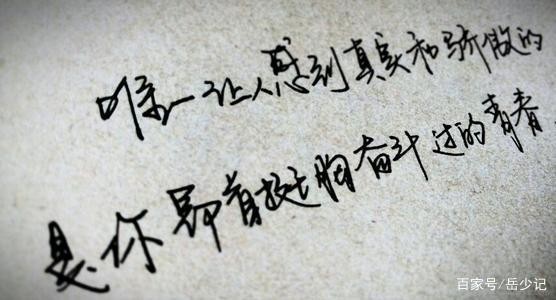 唯一让人感到真实和骄傲的
是你昂首挺胸奋斗过的青春
百家号/岳少记